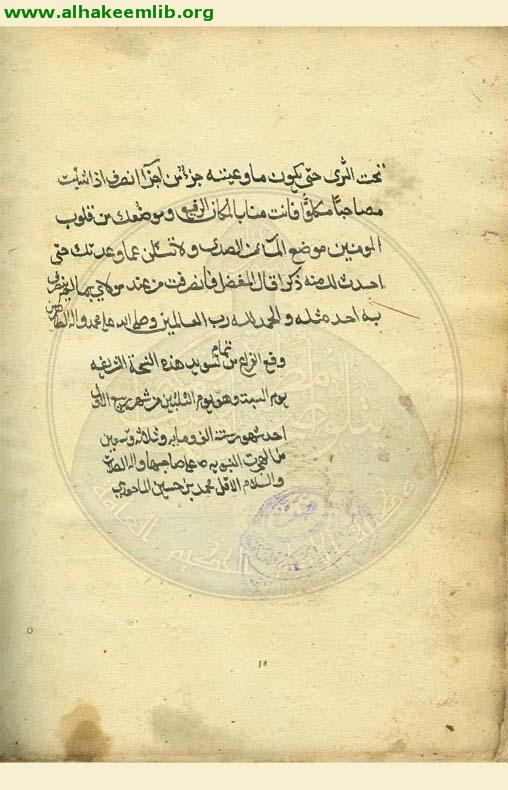 www.alhakeemlib.org
تحت الثرى حتى يكون ما وعيته جزء من اجزآ انصرف اذا شئت
مصاحبًا مكلوًّا فانت منا بالمكان الرفيع وموضعك من قلوب
المومنين موضع المآء من الصدى ولا تسئلن عما وعدتك حتى
احدث لك منه ذكرا قال المفضل فانصرفت من عند مولاي بما لم ينصرف
به احد مثله والحمد لله رب العالمين وصلى الله على محمد واله الطاهرين
وقع الفراغ من تمام تسويد هذه النسخة الشريفه
يوم السبت وهو يوم الثلثين من شهر ربيع
احد شهور سنة الف ومايه وثلاثه وتسعين
من الهجرت النبويه على صاحبها واله الصلاة
والسلام الاقل محمد بن حسين الماحوزي